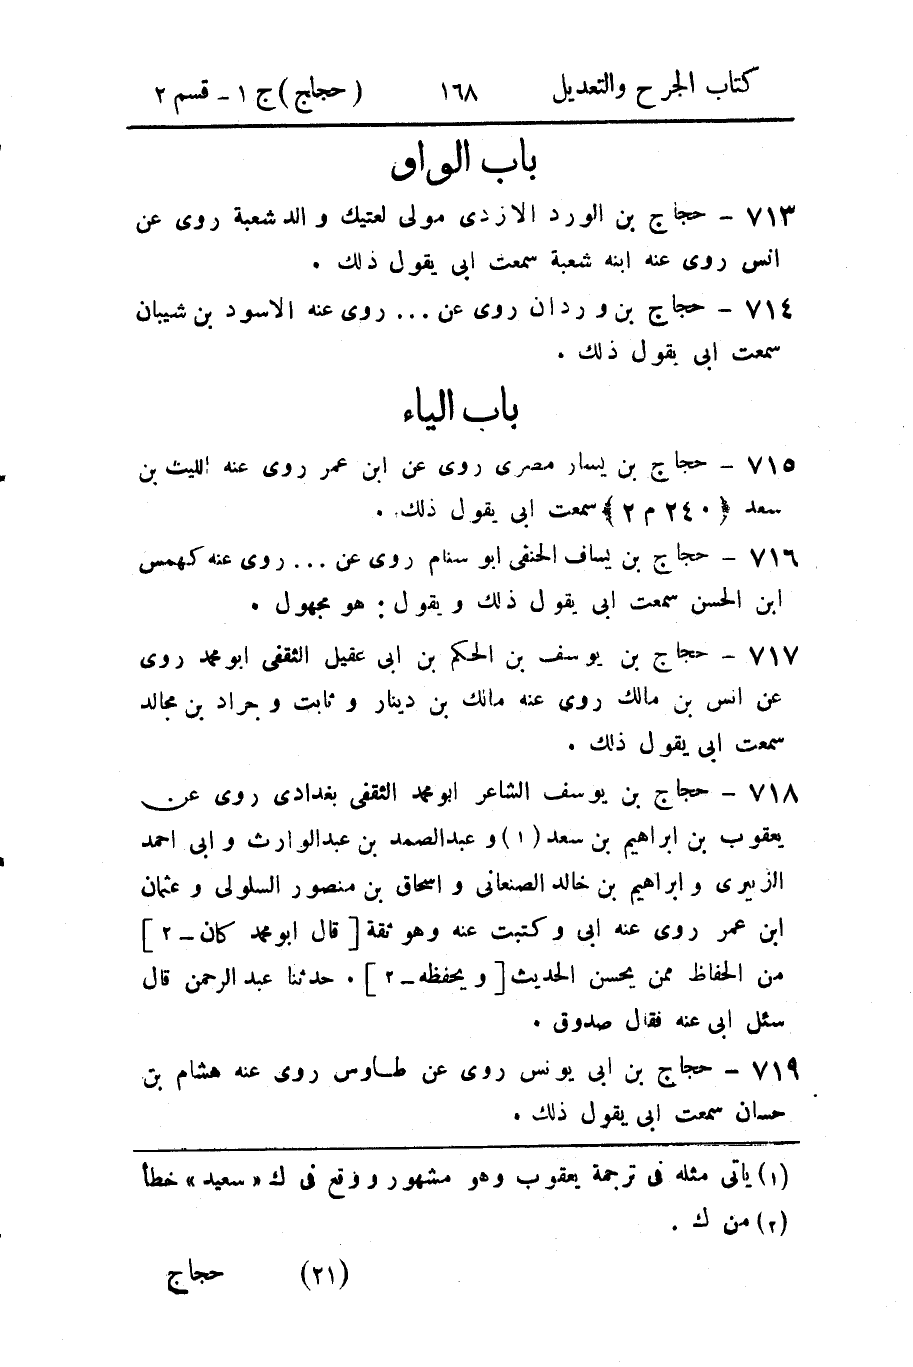 كتاب الجرح والتعديل ١٦٨ (حجاج) ج ١ - قسم ٢
باب الواو
٧١٣ - حجاج بن الورد الازدى مولى لعتيك والد شعبة روى عن
انس روى عنه ابنه شعبة سمعت ابى يقول ذلك .
٧١٤ - حجاج بن وردان روى عن ... روى عنه الاسود بن شيبان
سمعت ابى يقول ذلك .
باب الياء
٧١٥ - حجاج بن يسار مصرى روى عن ابن عمر روى عنه الليث بن
سعد ﴿٢٤٠ م ٢﴾ سمعت ابى يقول ذلك .
٧١٦ - حجاج بن يساف الحنفى ابو سنام روى عن ... روى عنه كهمس
ابن الحسن سمعت ابى يقول ذلك ويقول : هو مجهول .
٧١٧ - حجاج بن يوسف بن الحكم بن ابى عقيل الثقفى ابو محمد روى
عن انس بن مالك روى عنه مالك بن دينار وثابت وجراد بن مجالد
سمعت ابى يقول ذلك .
٧١٨ - حجاج بن يوسف الشاعر ابو محمد الثقفى بغدادى روى عن
يعقوب بن ابراهيم بن سعد (١) وعبدالصمد بن عبدالوارث وابى احمد
الزبيرى وابراهيم بن خالد الصنعانى واسحاق بن منصور السلولى وعثمان
ابن عمر روى عنه ابى وكتبت عنه وهو ثقة [ قال ابو محمد كان - ٢ ]
من الحفاظ ممن يحسن الحديث [ ويحفظه - ٢ ] . حدثنا عبد الرحمن قال
سئل ابى عنه فقال صدوق .
٧١٩ - حجاج بن ابى يونس روى عن طاوس روى عنه هشام بن
حسان سمعت ابى يقول ذلك .
(١) ياتى مثله فى ترجمة يعقوب وهو مشهور ووقع فى ك «سعيد» خطأ
(٢) من ك .
(٢١) حجاج